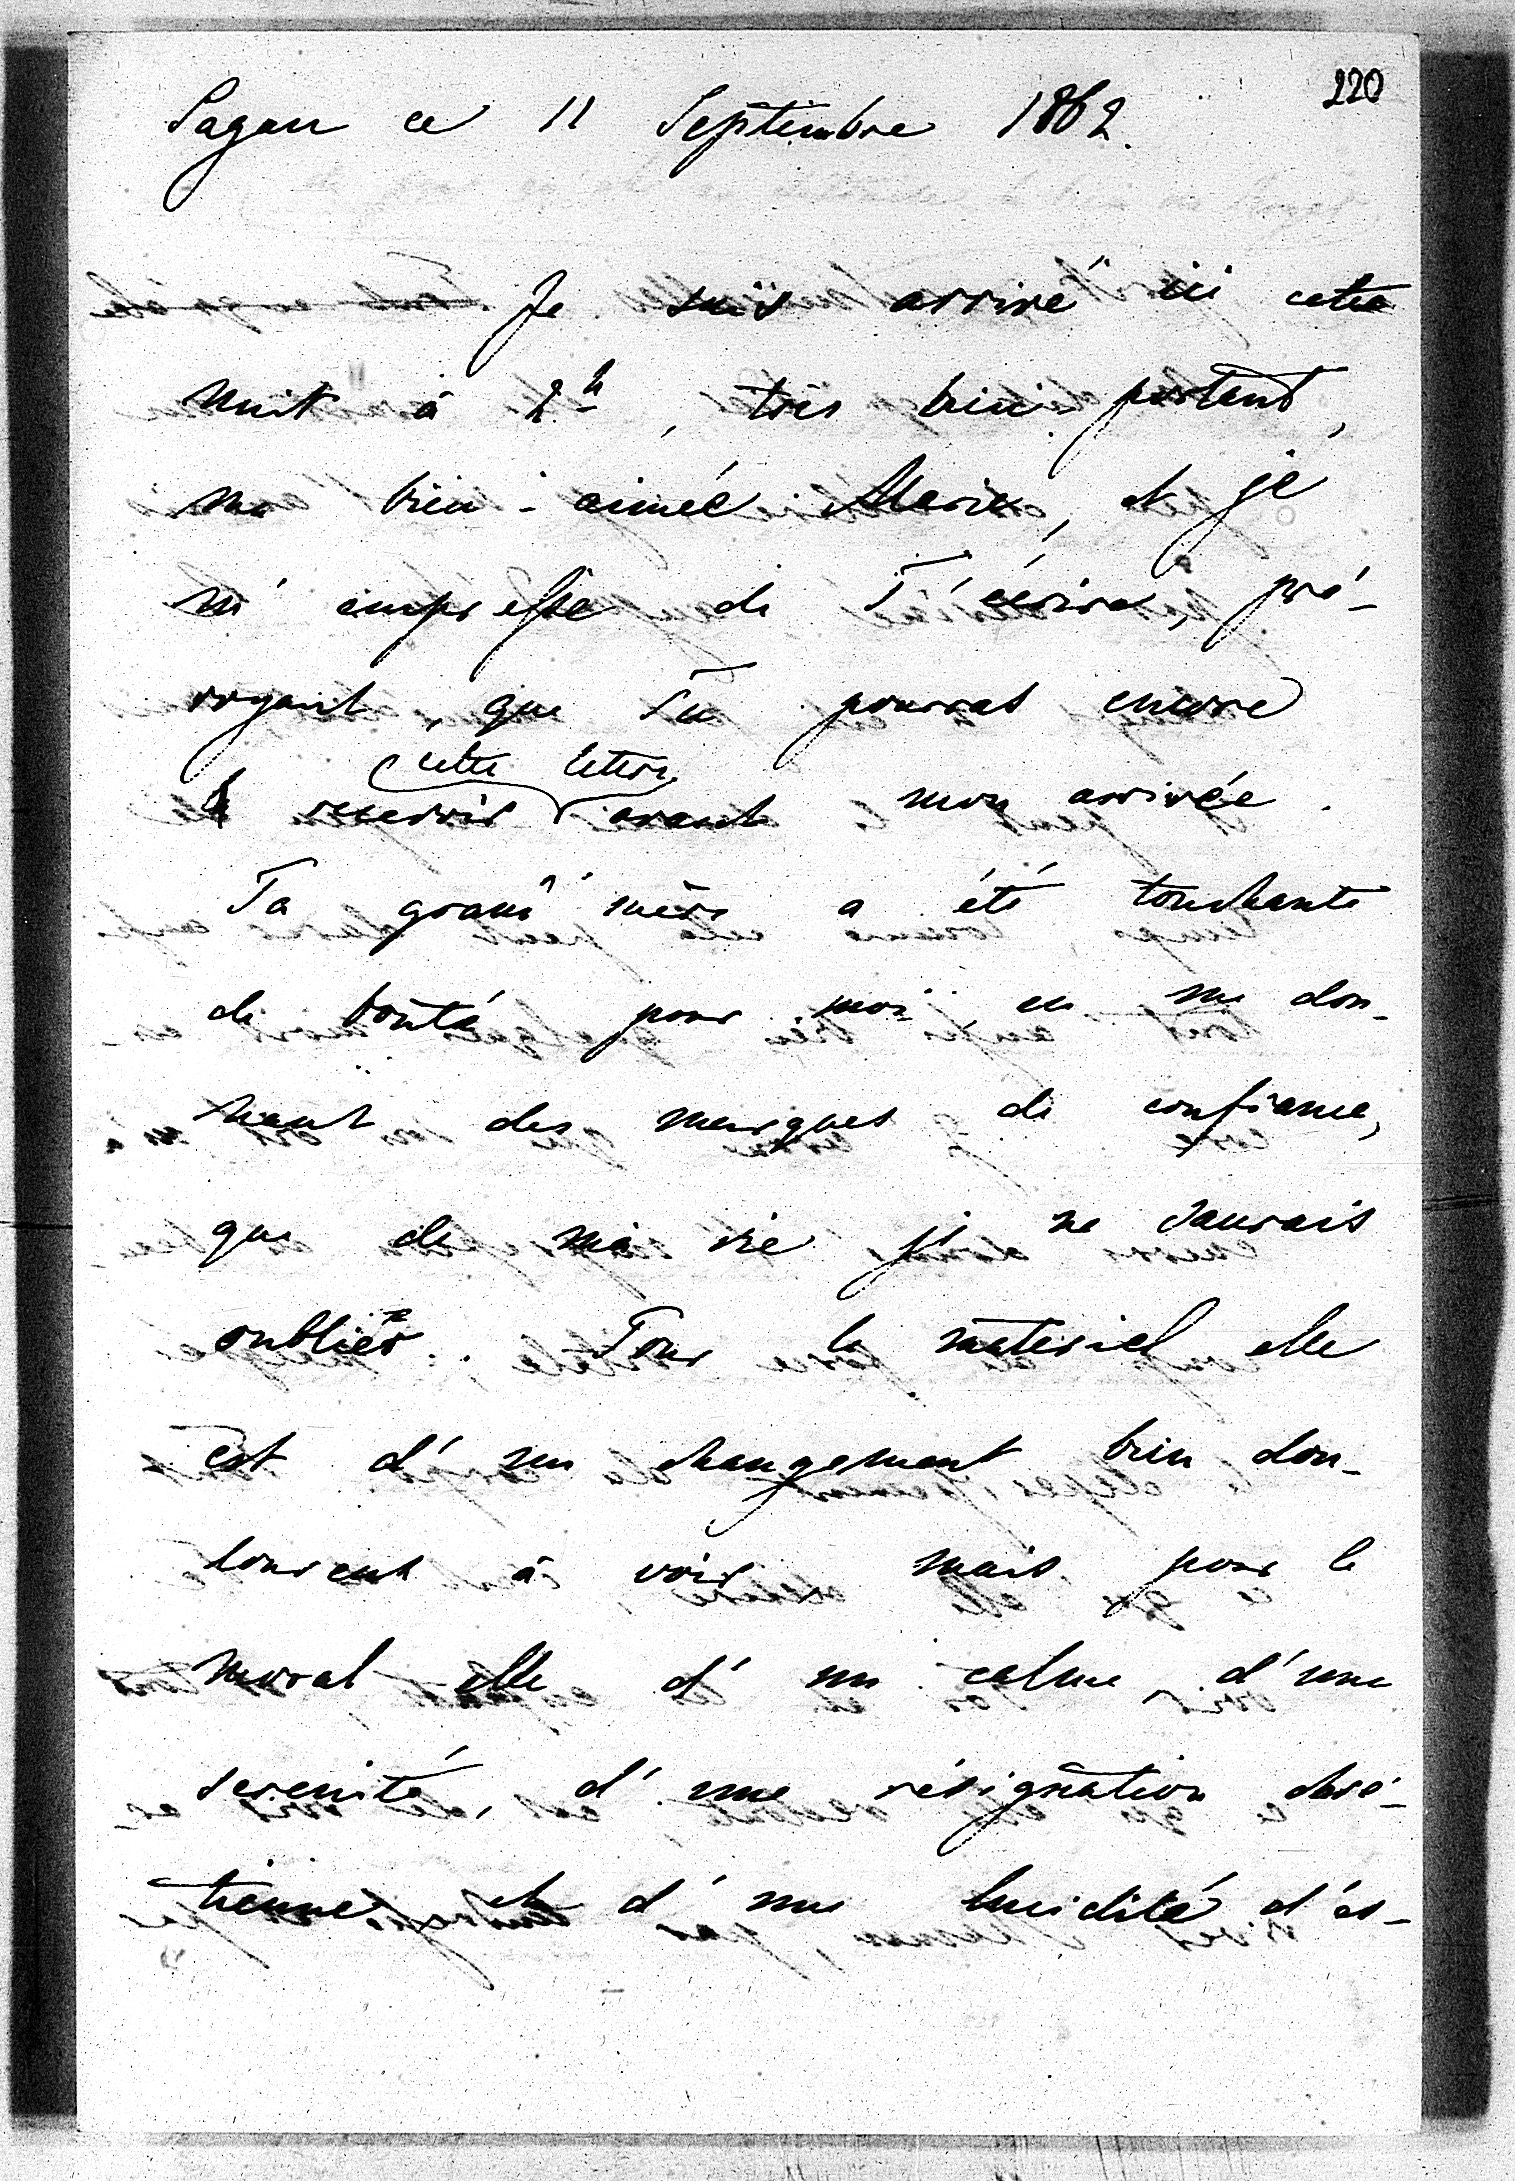 220
Sagan ce 11 Septembre 1862.
Je suis arrivé ici cette
nuit à 2h, très bien portant,
ma bien-aimée Marie, et je
m'empresse de T'écrire, pré-
voyant, que Tu pourras encore
cette lettre
recevoir avant mon arrivée.
Ta grand'mère a été touchante
de bonté pour moi, en me don-
nant des marques de confiance,
que de ma vie je ne saurais
oublier. Pour le materiel elle
est d'un changement bien dou-
loureux à voir, mais pour le
moral elle d'un calme, d'une
serenité, d'une résignation chré-
tienne et d'une lucidité d'es-